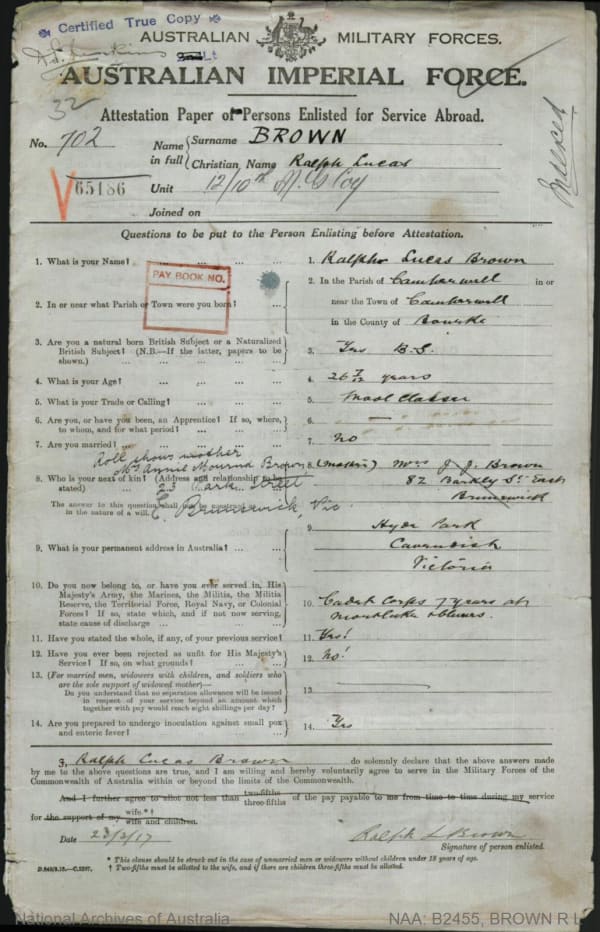 Certified True Copy
AUSTRALIAN MILITARY FORCES.
Lt
AUSTRALIAN IMPERIAL FORCE.
32
Attestation Paper of Persons Enlisted for Service Abroad.
Indexed
No. 702
Name in full
Surname BROWN
Christian Name Ralph Lucas
V 65186
Unit 12/10th M. G Coy
Joined on
Questions to be put to the Person Enlisting before Attestation.
1. What is your Name? ... ... ... ...
1. Ralph Lucas Brown
PAY BOOK NO.
2. In or near what Parish or Town were you born? ...
2. In the Parish of Camberwell in or
near the Town of Camberwell
in the County of Bourke
3. Are you a natural born British Subject or a Naturalized
British Subject? (N.B.—If the latter, papers to be
shown.) ... ... ... ... ...
3. Yes B.S.
4. What is your Age? ... ... ... ...
4. 26 7/12 years
5. What is your Trade or Calling? ... ... ...
5. Wool Classer
6. Are you, or have you been, an Apprentice? If so, where,
to whom, and for what period? ... ... ...
6.
7. Are you married? ... ... ... ...
7. No
Roll shows mother
Mrs Annie Brown
23 Park Street
E. Brunswick, Vic
8. Who is your next of kin? (Address and relationship to be
stated)
The answer to this question shall
in the nature of a will.
8. (Mother) Mrs J. J. Brown
82 Barkly St East
Brunswick
9. What is your permanent address in Australia? ... ...
9. Hyde Park
Cavendish
Victoria
10. Do you now belong to, or have you ever served in, His
Majesty's Army, the Marines, the Militia, the Militia
Reserve, the Territorial Force, Royal Navy, or Colonial
Forces? If so, state which, and if not now serving,
state cause of discharge ... ... ...
10. Cadet Corps 7 years at
11. Have you stated the whole, if any, of your previous service?
11. Yes!
12. Have you ever been rejected as unfit for His Majesty's
Service? If so, on what grounds? ... ...
12. No!
13. (For married men, widowers with children, and soldiers who
are the sole support of widowed mother)—
Do you understand that no separation allowance will be issued
in respect of your service beyond an amount which
together with pay would reach eight shillings per day?
13.
14. Are you prepared to undergo inoculation against small pox
and enteric fever? ... ... ... ...
14. Yes
I, Ralph Lucas Brown do solemnly declare that the above answers made
by me to the above questions are true, and I am willing and hereby voluntarily agree to serve in the Military Forces of the
Commonwealth of Australia within or beyond the limits of the Commonwealth.
And I further agree to allot not less than two-fifths three-fifths of the pay payable to me from time to time during my service
for the support of my wife.*† wife and children.
Date 23/2/17
Ralph L Brown
Signature of person enlisted.
* This clause should be struck out in the case of unmarried men or widowers without children under 18 years of age.
† Two-fifths must be allotted to the wife, and if there are children three-fifths must be allotted.
National Archives of Australia
NAA: B2455, BROWN R L